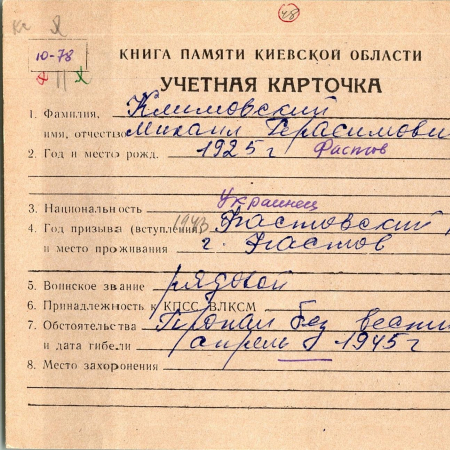 48
10-78
КНИГА ПАМЯТИ КИЕВСКОЙ ОБЛАСТИ
УЧЕТНАЯ КАРТОЧКА
1. Фамилия, Климовский
имя, отчество Михаил Герасимови
2. Год и место рожд. 1925 г Фастов
3. Национальность Украинец
4. Год призыва (вступления) 1943 Фастовский
и место проживания г. Фастов
5. Воинское звание рядовой
6. Принадлежность к КПСС, ВЛКСМ
7. Обстоятельства Пропал без вести
и дата гибели апрель 1945 г
8. Место захоронения